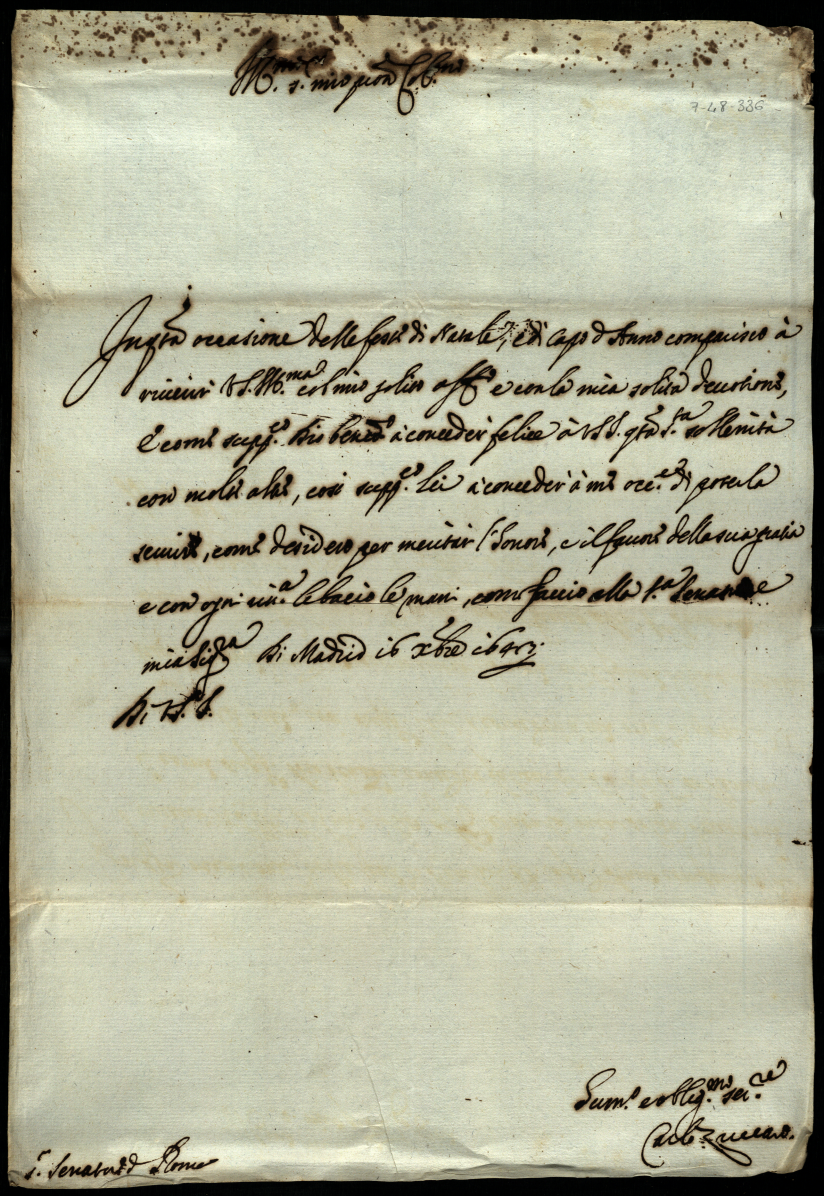 Ill.mo s.r mio p̃ron Col.mo
7-48-336
In q̃sta occasione delle feste di Natale, e di Capo d Anno comparisco à
riuerir V.S. Ill.ma col mio solito aff.o e con la mia solita deuotione,
e come supp.co Dio bened.o à conceder felice à V.S.I. q̃sta s.ta sollenità
con molte altre, così supp.co lei à conceder à me occ.ne di poterla
seruire, come desidero per meritar l'honore, e il fauore della sua gratia
e con ogni riu.a le bacio le mani, come faccio alla s.ra Senatrice
mia Sig.ra Di Madrid 16 xbre
Di V.S.I.
Deum.o e oblig.mo ser.re
Carlo Zuccaro.
s.r Senatore di Roma